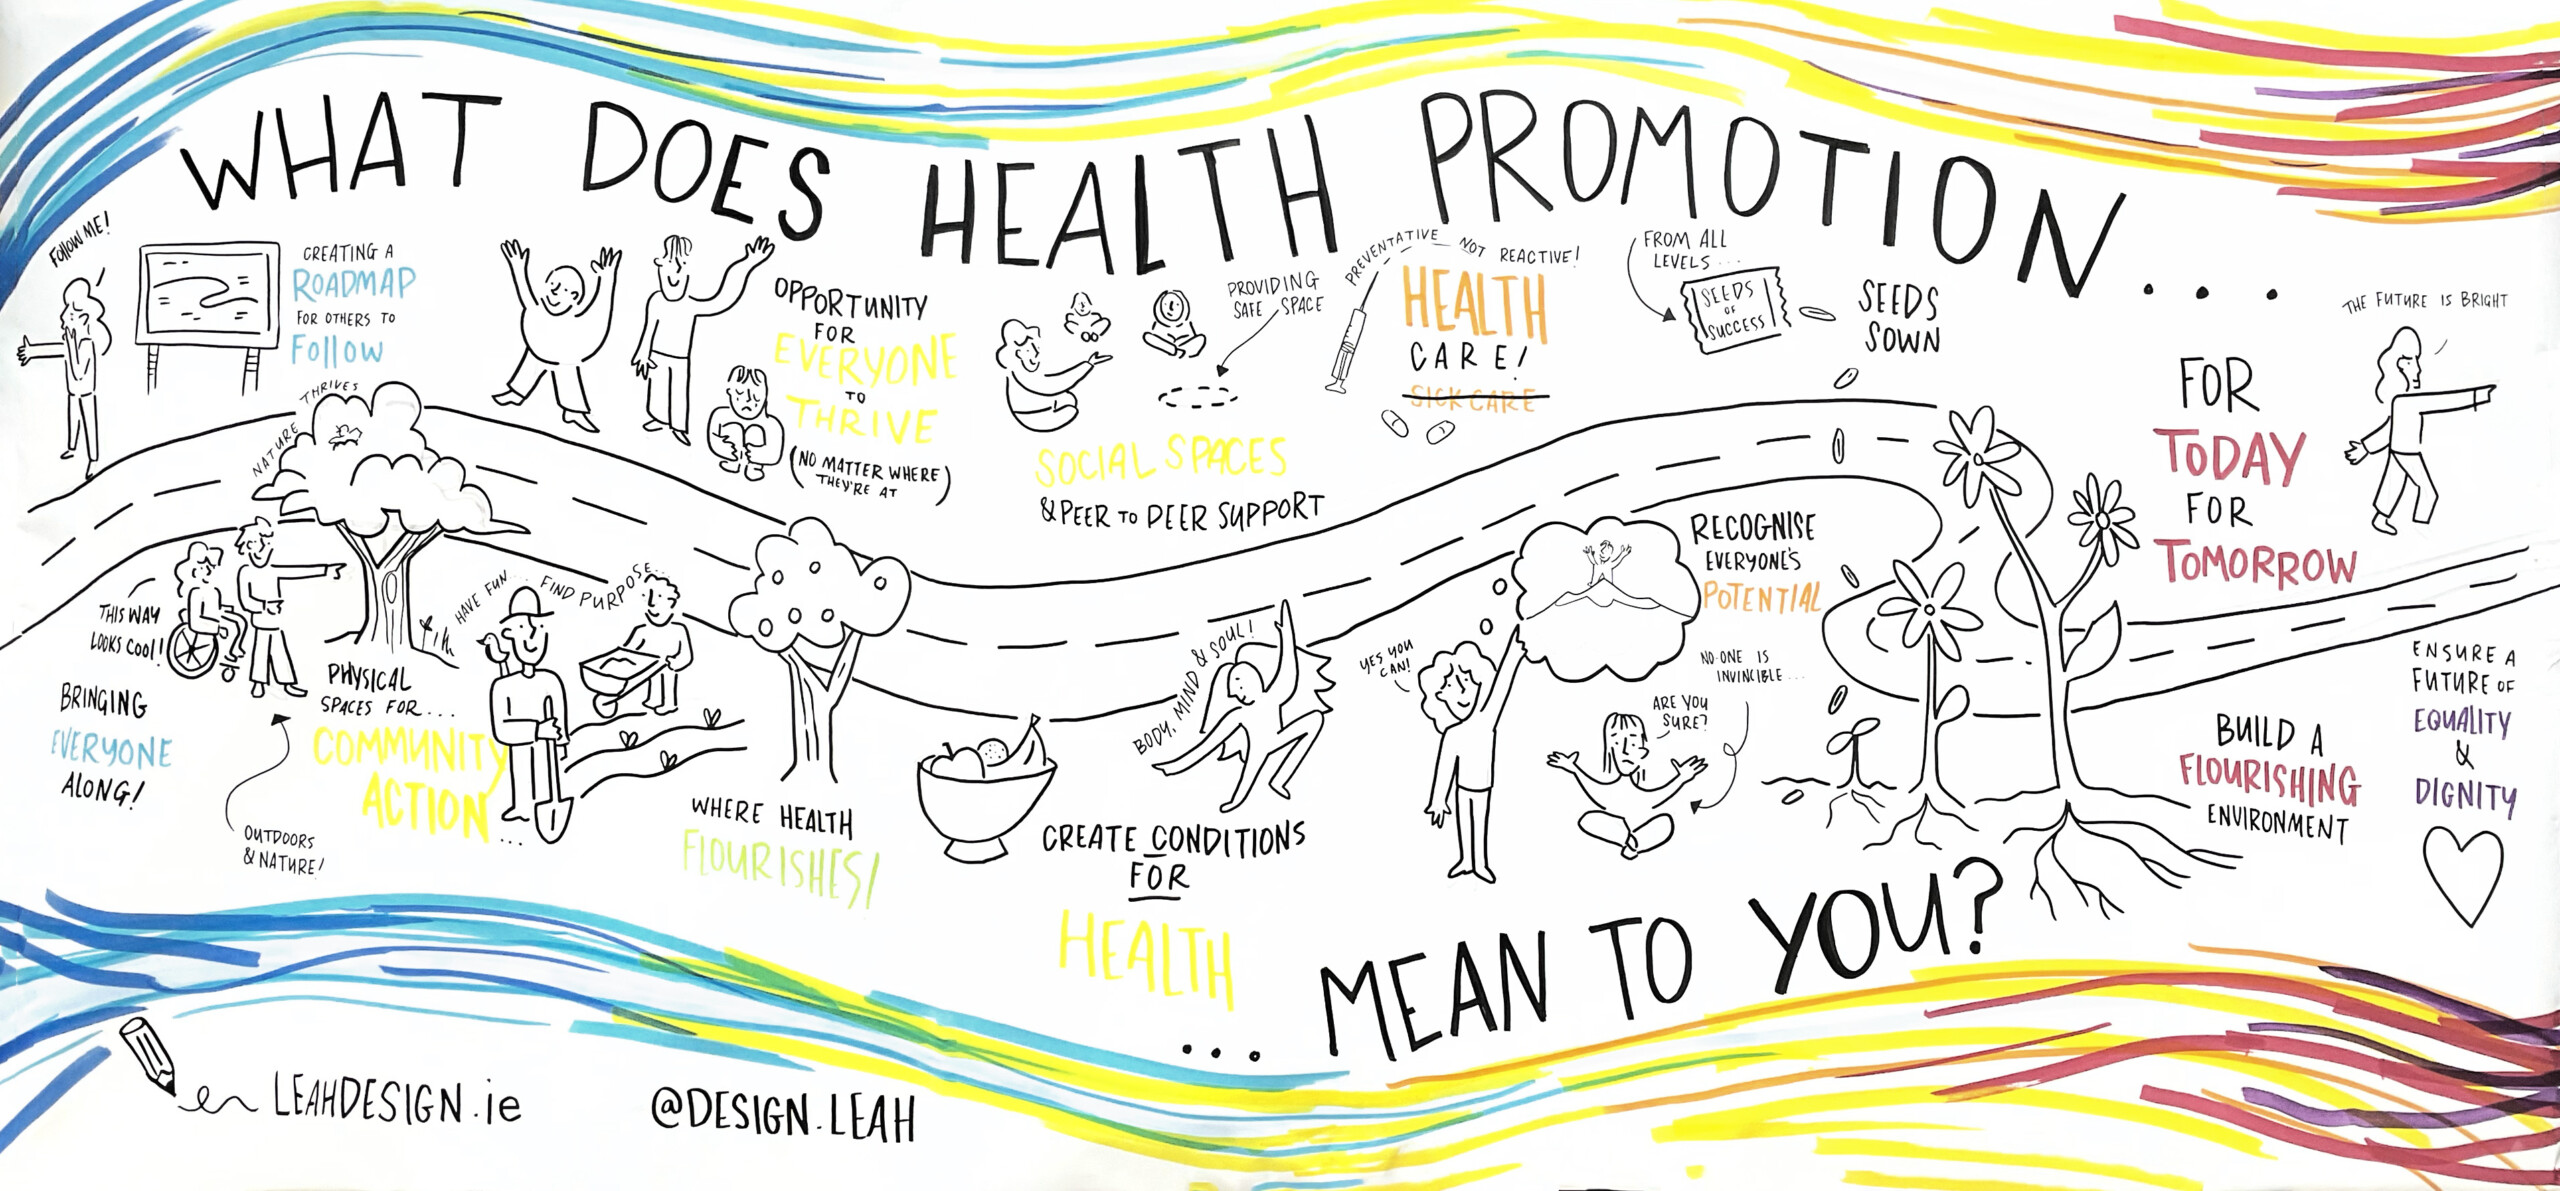 WHAT DOES HEALTH PROMOTION...
FOLLOW ME!
CREATING A
ROADMAP
FOR OTHERS TO
FOLLOW
OPPORTUNITY
FOR
EVERYONE
TO
THRIVE
(NO MATTER WHERE
THEY'RE AT)
PROVIDING
SAFE SPACE
SOCIAL SPACES
& PEER TO PEER SUPPORT
PREVENTATIVE NOT REACTIVE!
HEALTH
CARE!
SICK CARE
FROM ALL
LEVELS...
SEEDS
OF
SUCCESS
SEEDS
SOWN
FOR
TODAY
FOR
TOMORROW
THE FUTURE IS BRIGHT
NATURE THRIVES
THIS WAY
LOOKS COOL!
BRINGING
EVERYONE
ALONG!
OUTDOORS
& NATURE!
PHYSICAL
SPACES FOR...
COMMUNITY
ACTION...
HAVE FUN... FIND PURPOSE...
WHERE HEALTH
FLOURISHES!
CREATE CONDITIONS
FOR
HEALTH
BODY, MIND & SOUL!
YES YOU
CAN!
RECOGNISE
EVERYONE'S
POTENTIAL
NO-ONE IS
INVINCIBLE...
ARE YOU
SURE?
BUILD A
FLOURISHING
ENVIRONMENT
ENSURE A
FUTURE OF
EQUALITY
&
DIGNITY
... MEAN TO YOU?
LEAHDESIGN.ie
@DESIGN.LEAH